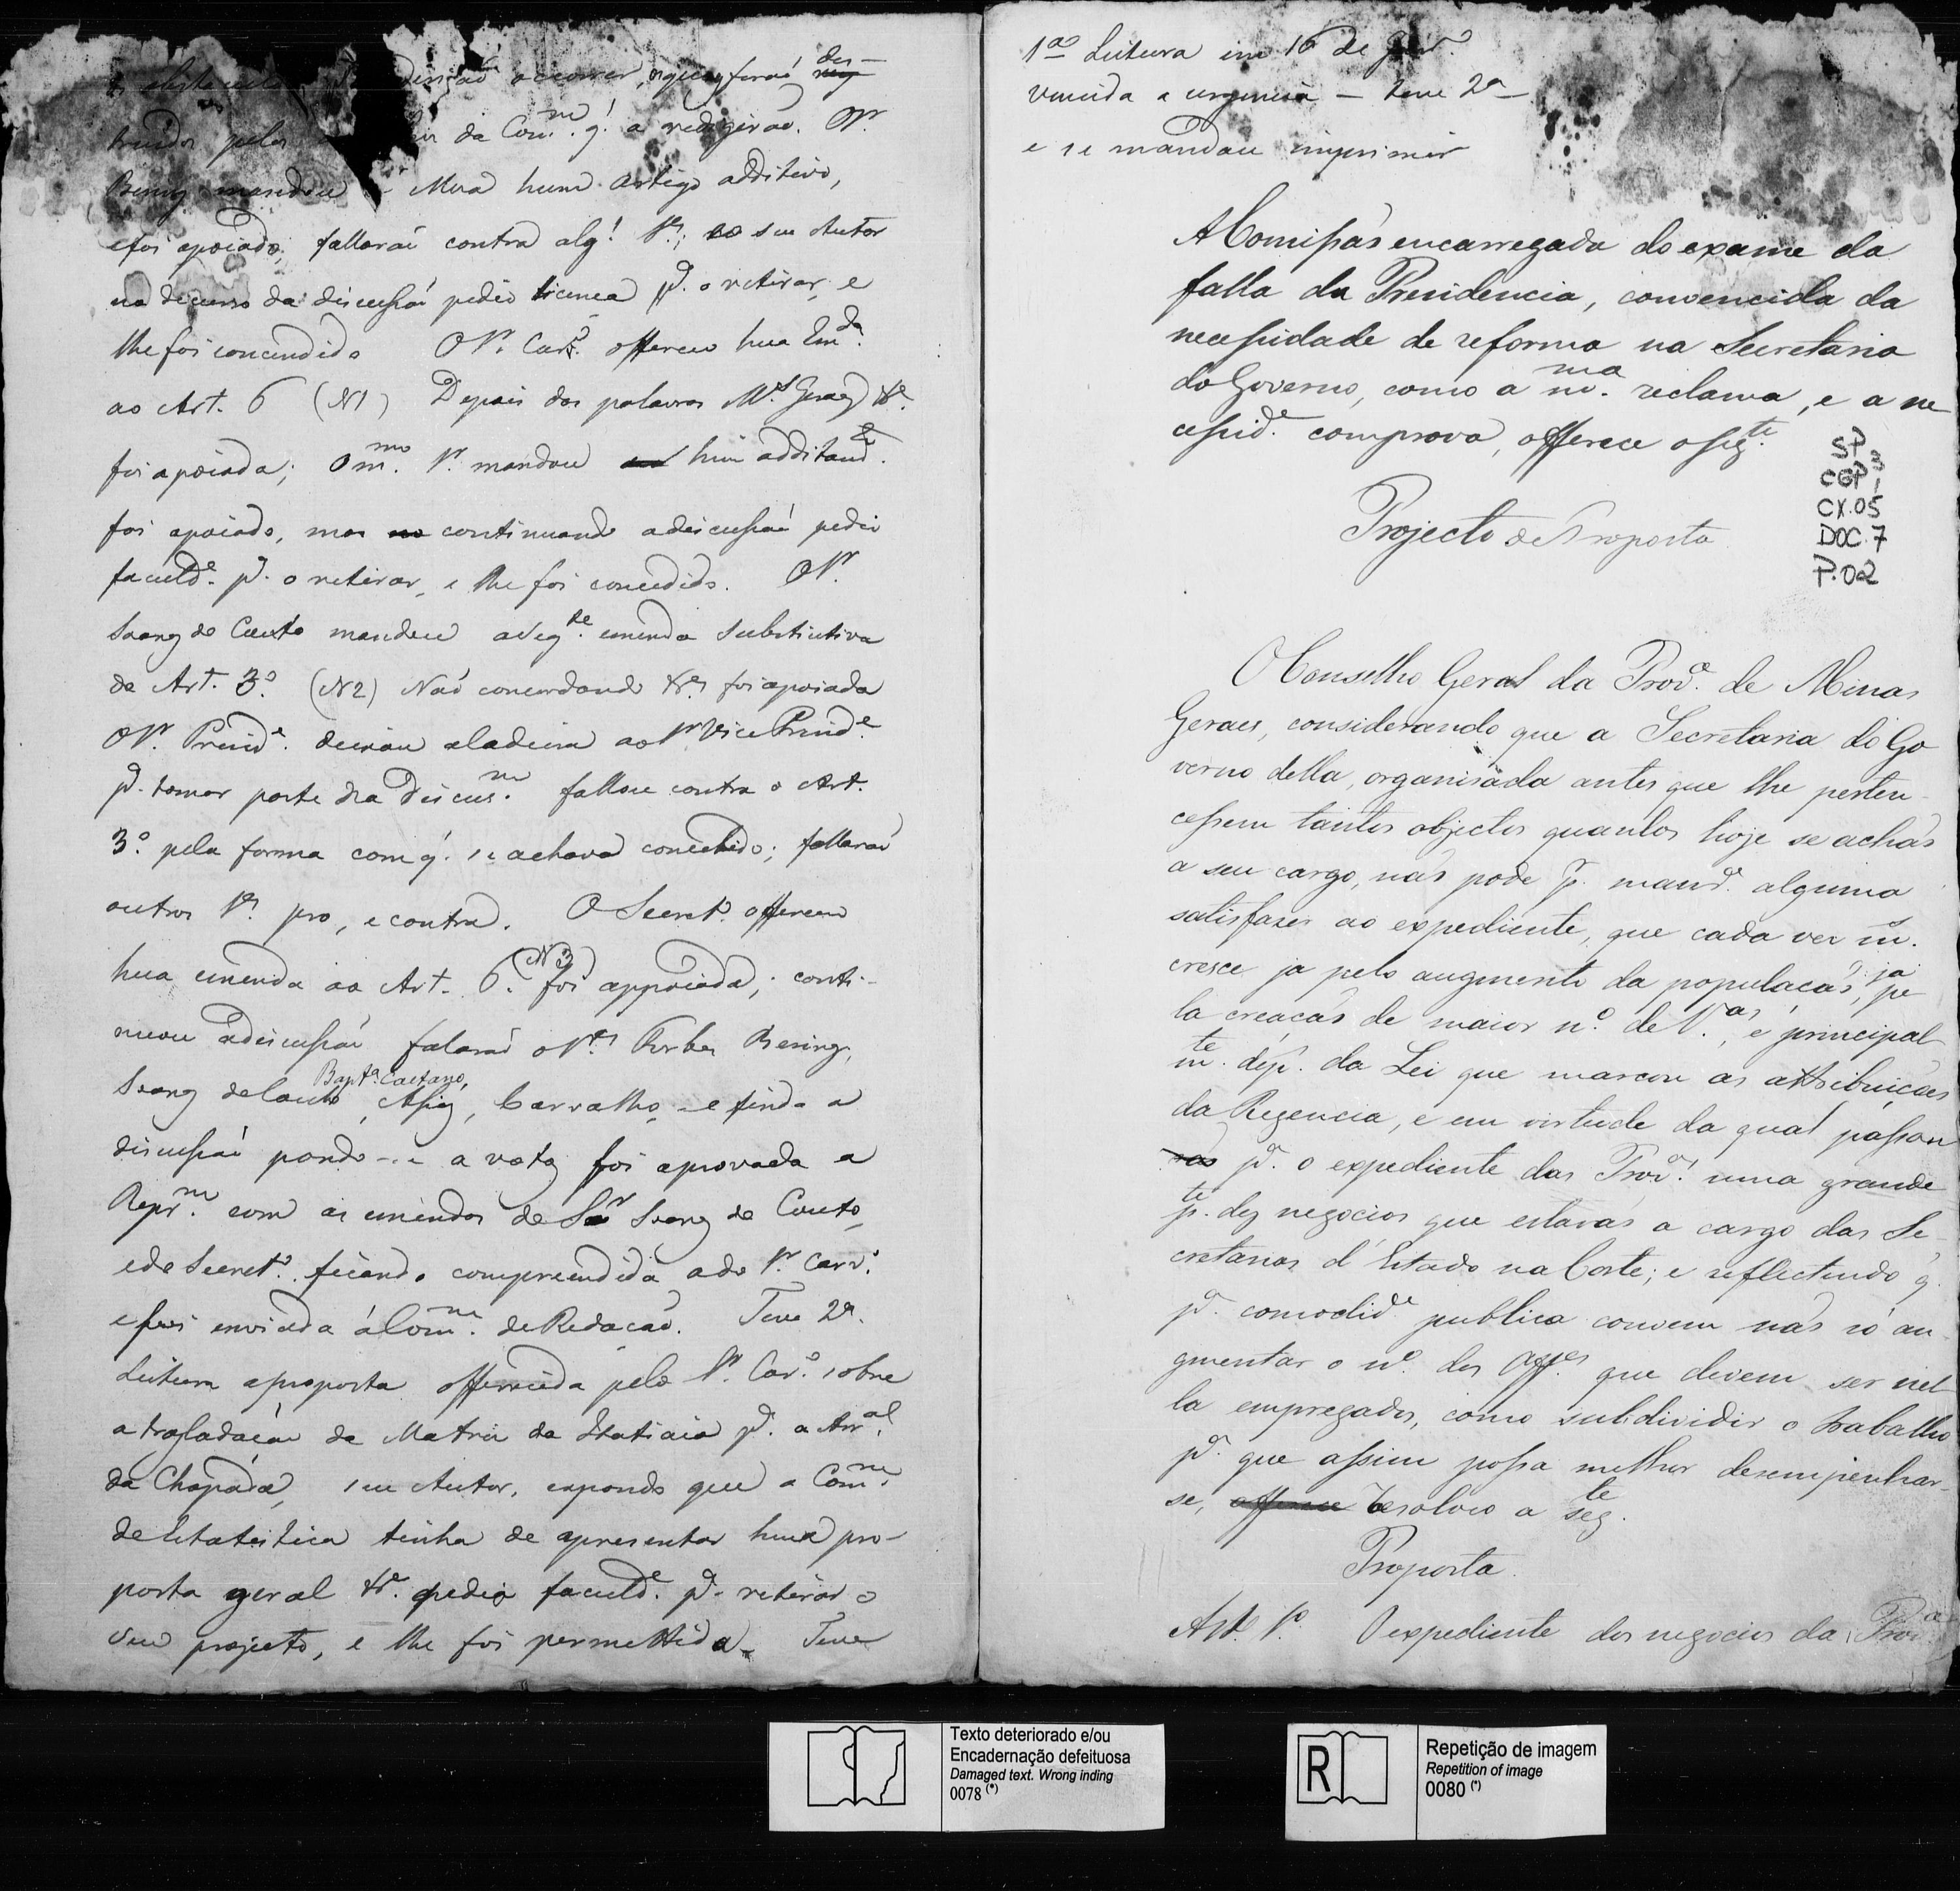 occorrer, des-
pelos da Com.m q.' a redigirão. O Sr.
mandou Meza hum artigo additivo,
e foi apoiado; fallarão contra alg.' Srs; seu Autor
no decurso da discussão pedio licença p.a o retirar, e
lhe foi concedido O Sr. Car.o offereceu hua Em.da
ao Art. 6 (N1) Depois das palavras &.
foi apoiada; O m.mo Sr. mandou hum additam.to
foi apoiado, mas continuando a discussão pedio
faculd.e p.a o retirar, e lhe foi concedido. O Sr.
Soares do Couto mandou a seg.te emenda substitutiva
do Art. 3.o (N2) Não concordando &.a foi apoiada
O Sr. Presid.e deixou a Cadeira ao Sr. Vice Presid.e
p.a tomar parte na discus.m fallou contra o Art.
3.o pela forma com q.' se achava concebido; fallarão
outros Srs. pro, e contra. O Secret.o offereceu
hua emenda ao Art. 6.o (N3) foi appoiada; conti-
nuou a discussão falarão os Srs. Bering,
Soares do Couto, Bapt.a Caetano, Assis, Carvalho, e finda a
discussão pondo-se a votos foi aprovada a
Repr.m com as emendas do Sr. Soares do Couto,
e do Secret.o ficando comprehendida a do Sr. Carv.o
e foi enviada á Com.m de Redacção. Teve 2.a
Leitura a proposta offerecida pelo Sr. Car.o sobre
a trasladação da Matriz da Itatiaia p.a o Arr.al
da Chapada, seu Autor, expondo que a Com.m
de Estatistica tinha de apresentar hua pro-
posta geral &.a pedio faculd.e p.a retirar o
seu projecto, e lhe foi permettido. Teve
1.a Leitura em 16 de
vencida a urgencia — teve 2.a —
e se mandou imprimir
A Comissão encarregada do exame da
falla da Presidencia, convencida da
necessidade de reforma na Secretaria
do Governo, como a m.ma reclama, e a ne
cessid.e comprova, offerece o seg.te
SP,
CGP 3,
CX.05
DOC.7
P.02
Projecto de Proposta
O Conselho Geral da Prov.a de Minas
Geraes, considerando que a Secretaria do Go
verno della, organisada antes que lhe perten-
cessem tantos objectos quantos hoje se achão
a seu cargo, não pode p.r man.ra alguma
satisfazer ao expediente, que cada vez m.s
cresce já pelo augmento da população, já pe
la creação de maior n.o de V.as, e principal
m.te dep.s da Lei que marcou as attribuições
da Regencia, e em virtude da qual passou
p.a o expediente das Prov.as uma grande
p.te dos negocios que estavão a cargo das Se-
cretarias d'Estado na Corte; e reflectindo q.
p.a comodid.e publica convem não só au
gmentar o n.o dos Off.es que devem ser nel
la empregados, como subdividir o trabalho
p.a que assim possa melhor desempenhar-
se, offerece resolveo a seg.te
Proposta.
Art. 1.o O expediente dos negocios da Prov.a
Texto deteriorado e/ou
Encadernação defeituosa
Damaged text. Wrong inding
0078 (*)
R
Repetição de imagem
Repetition of image
0080 (*)